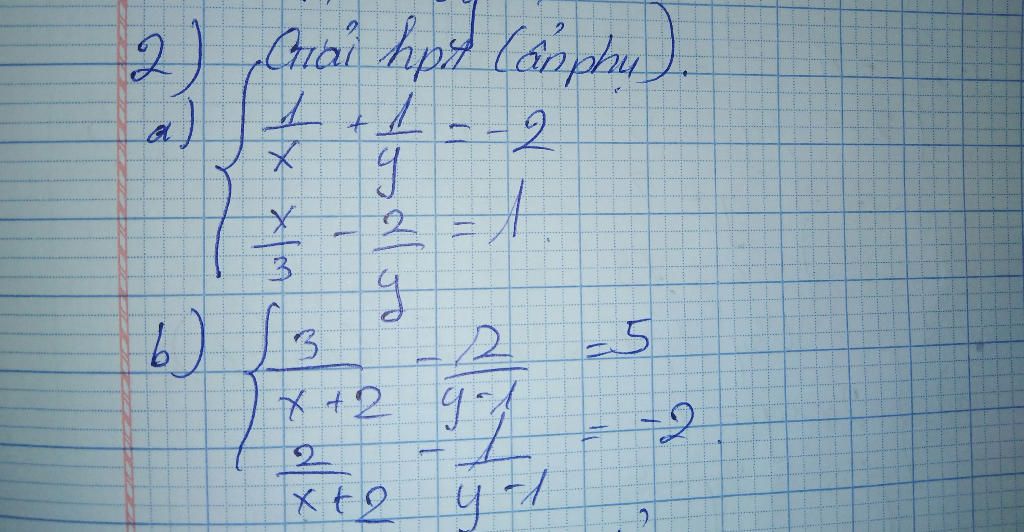 2) Giải hpt (ẩn phụ).
a) { 1/x + 1/y = -2
x/3 - 2/y = 1.
b) { 3/(x+2) - 2/(y-1) = 5
2/(x+2) - 1/(y-1) = -2.